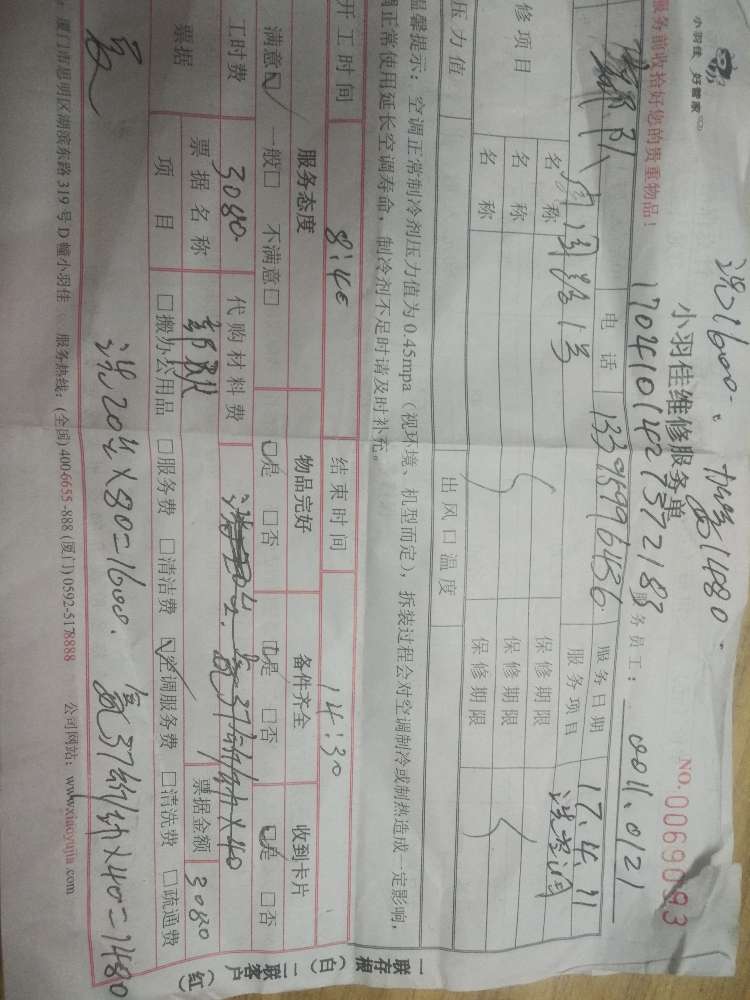 洗1600. 加氟1480.
小羽佳 好管家
小羽佳维修服务单
NO.0069093
17041014273721 83
服务前收拾好您的贵重物品!
服务员工: 0011.0121
电话 13959996436
服务日期 17.4.11
服务项目 洗空调
修项目
名称
保修期限
名称
保修期限
名称
保修期限
压力值
出风口温度
温馨提示:空调正常制冷剂压力值为0.45mpa(视环境、机型而定),拆装过程会对空调制冷或制热造成一定影响,
调正常使用延长空调寿命,制冷剂不足时请及时补充。
开工时间 8:40 结束时间 14:30
服务态度 物品完好 备件齐全 收到卡片
满意☑ 一般□ 不满意□ ☑是 □否 ☑是 □否 ☑是 □否
工时费 3080 代购材料费 氟37公斤×40
票据 票据名称 票据金额 3080
项目 □搬办公用品 □服务费 □清洁费 ☑空调服务费 □清洗费 □疏通费
洗20×80=1600. 氟37×40=1480
一联存根(白) 一联客户(红)
:厦门市思明区湖滨东路319号D幢小羽佳 服务热线:(全国)400-6655-888 (厦门)0592-5178888 公司网站:www.xiaoyujia.com